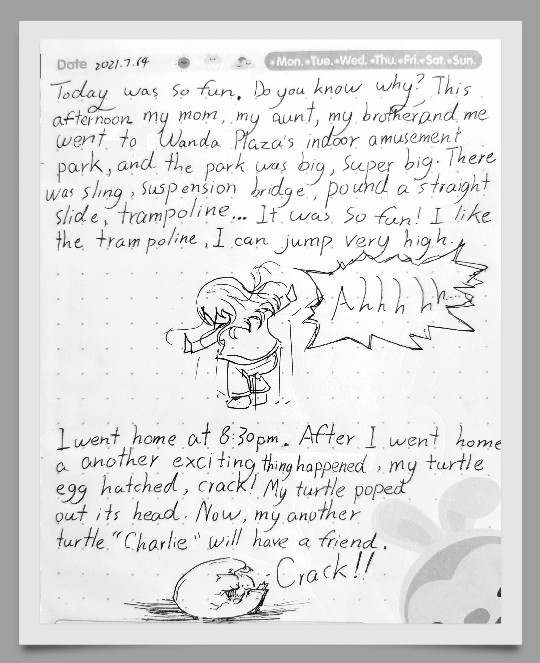 Date 2021.7.14 •Mon.•Tue.•Wed.•Thu.•Fri.•Sat.•Sun.
Today was so fun. Do you know why? This
afternoon my mom, my aunt, my brother and me
went to Wanda Plaza's indoor amusement
park, and the park was big, super big. There
was sling, suspension bridge, pound a straight
slide, trampoline... It was so fun! I like
the trampoline, I can jump very high.
Ahhhhh...
I went home at 8:30pm. After I went home
a another exciting thing happened, my turtle
egg hatched, crack! My turtle poped
out its head. Now, my another
turtle "Charlie" will have a friend.
Crack!!